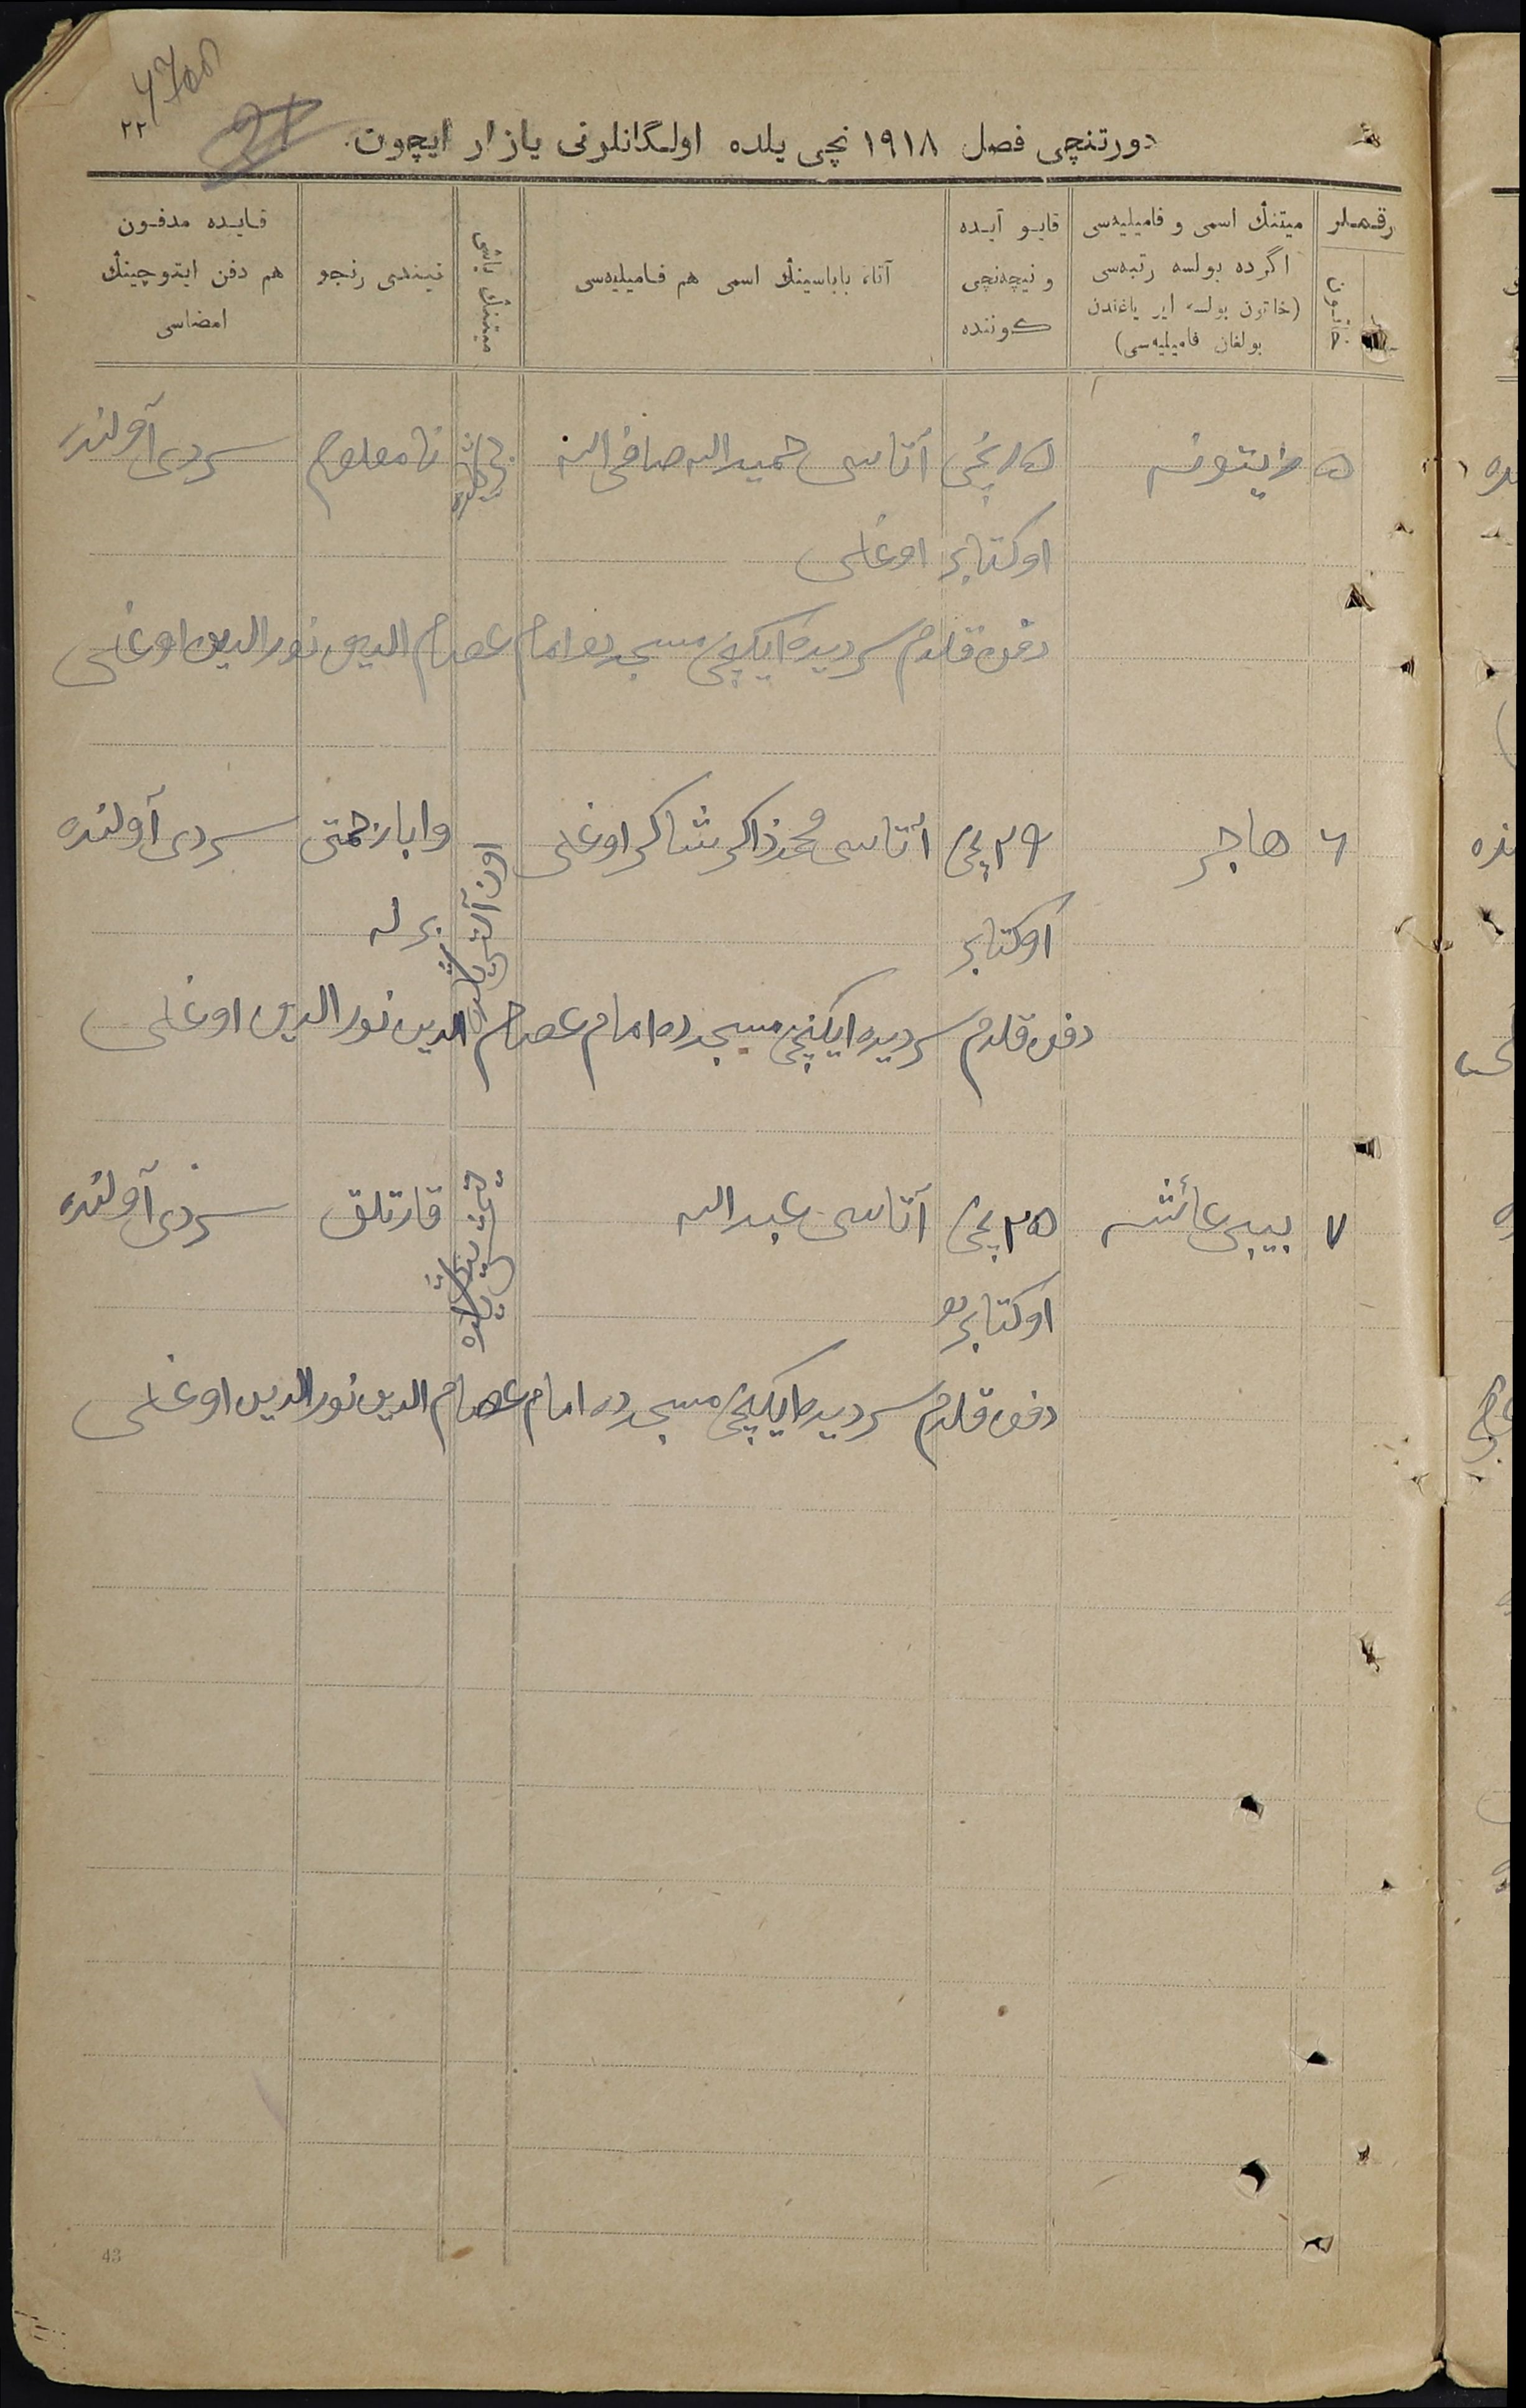 ٢٢
دورتنچی فصل ١٩١٨ نچی یلده اولگانلرنی یازار ایچون.
رقملر
میتنڭ اسمی و فامیلیه‌سی
اگرده بولسه رتبه‌سی
(خاتون بولسه ایر یاغندن
بولغان فامیلیه‌سی)
قایو آیده
و نیچه‌نچی
كوننده
آتا، باباسینڭ اسمی هم فامیلیه‌سی
میتنڭ یاشی
نیندی رنجو
قایده مدفون
هم دفن ایتوچینڭ
امضاسی
٥ زیتونه ١٥ نچی آتاسی حمیدالله صافی الله نامعلوم سردی آولنده
اوكتابر اوغلی
دفن قلدم سردیده ایكنچی مسجدده امام عصام الدین نورالدین اوغلی
٦ هاجر ٢٩ نچی آتاسی محمدذاكر شاكر اوغلی اون آلتی یاشده وابا زحمتی سردی آولنده
اوكتابر برله
دفن قلدم سردیده ایكنچی مسجدده امام عصام الدین نورالدین اوغلی
٧ بیبی عائشه ٢٥ نچی آتاسی عبدالله یاشنده قارتلق سردی آولنده
اوكتابرده
دفن قلدم سردیده ایكنچی مسجدده امام عصام الدین نورالدین اوغلی
43